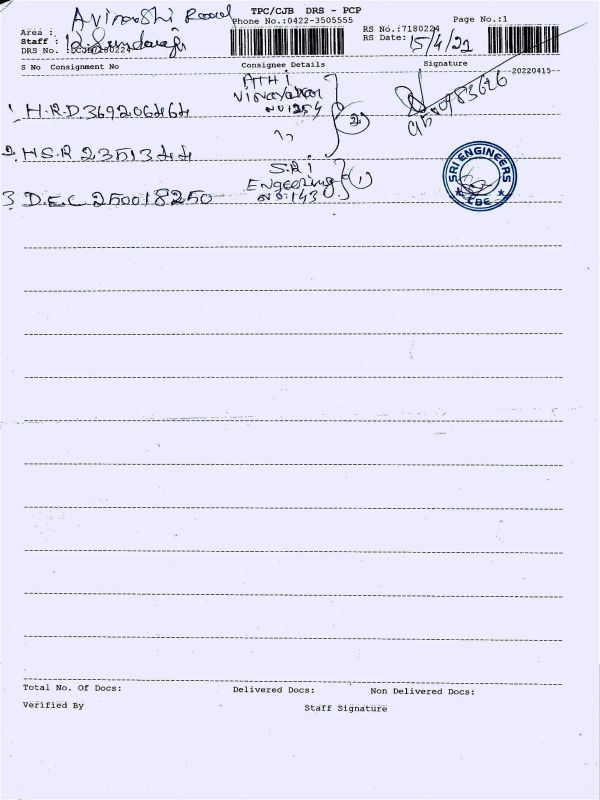 Avinashi Road
TPC/CJB DRS - PCP
Phone No.:0422-3505555
Page No.:1
Area :
Staff :
DRS No.
RS No.:7180224
RS Date: 15/4/22
S No Consignment No
Consignee Details
Signature
20220415
1. H.R.D. 369206464
ATHi
Vinayakar
NO 1254
2. H.S.R 2351344
(2)
3 D.E.C 250018250
S.R.i
Engeering
NO: 143
(1)
SRI ENGINEERS
CBE
Total No. Of Docs:
Delivered Docs:
Non Delivered Docs:
Verified By
Staff Signature